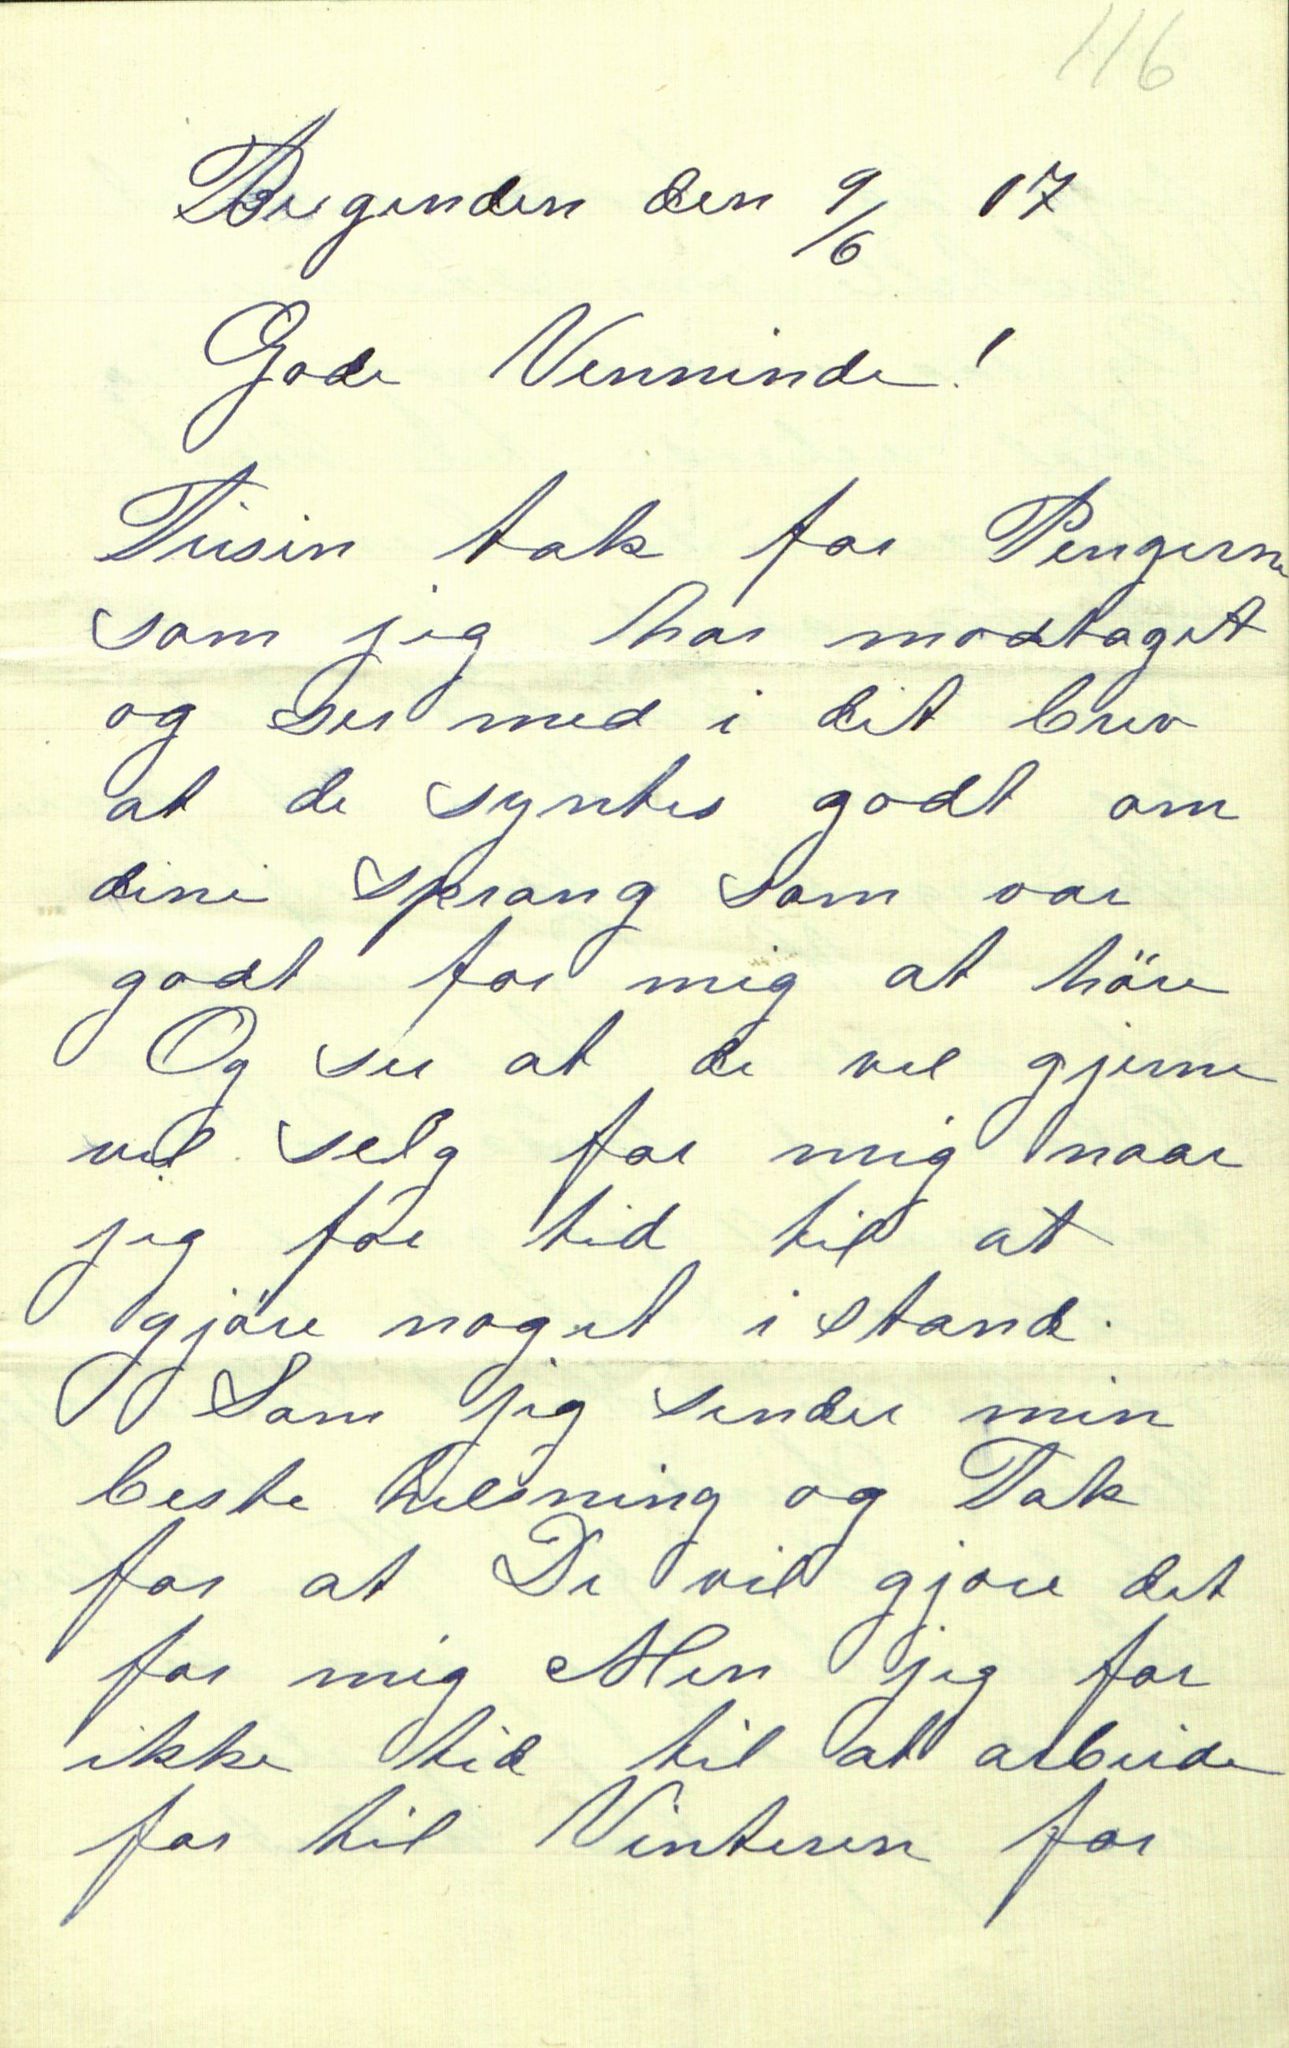 116
Bugunden den 9/6 17
Gode Venninde!
Tusin tak for Pengerne
som jeg har modtaget
og ser med i dit brev
at de syntes godt om
dine sprang som var
godt for mig at höre
Og ser at de vel gjerne
vil selg for mig naar
jeg for tid til at
gjöre noget i stand.
Som jeg sender min
beste helsning og Tak
for at De vil gjore det
for mig Men jeg for
ikke tid til at arbeide
for til Vinteren for